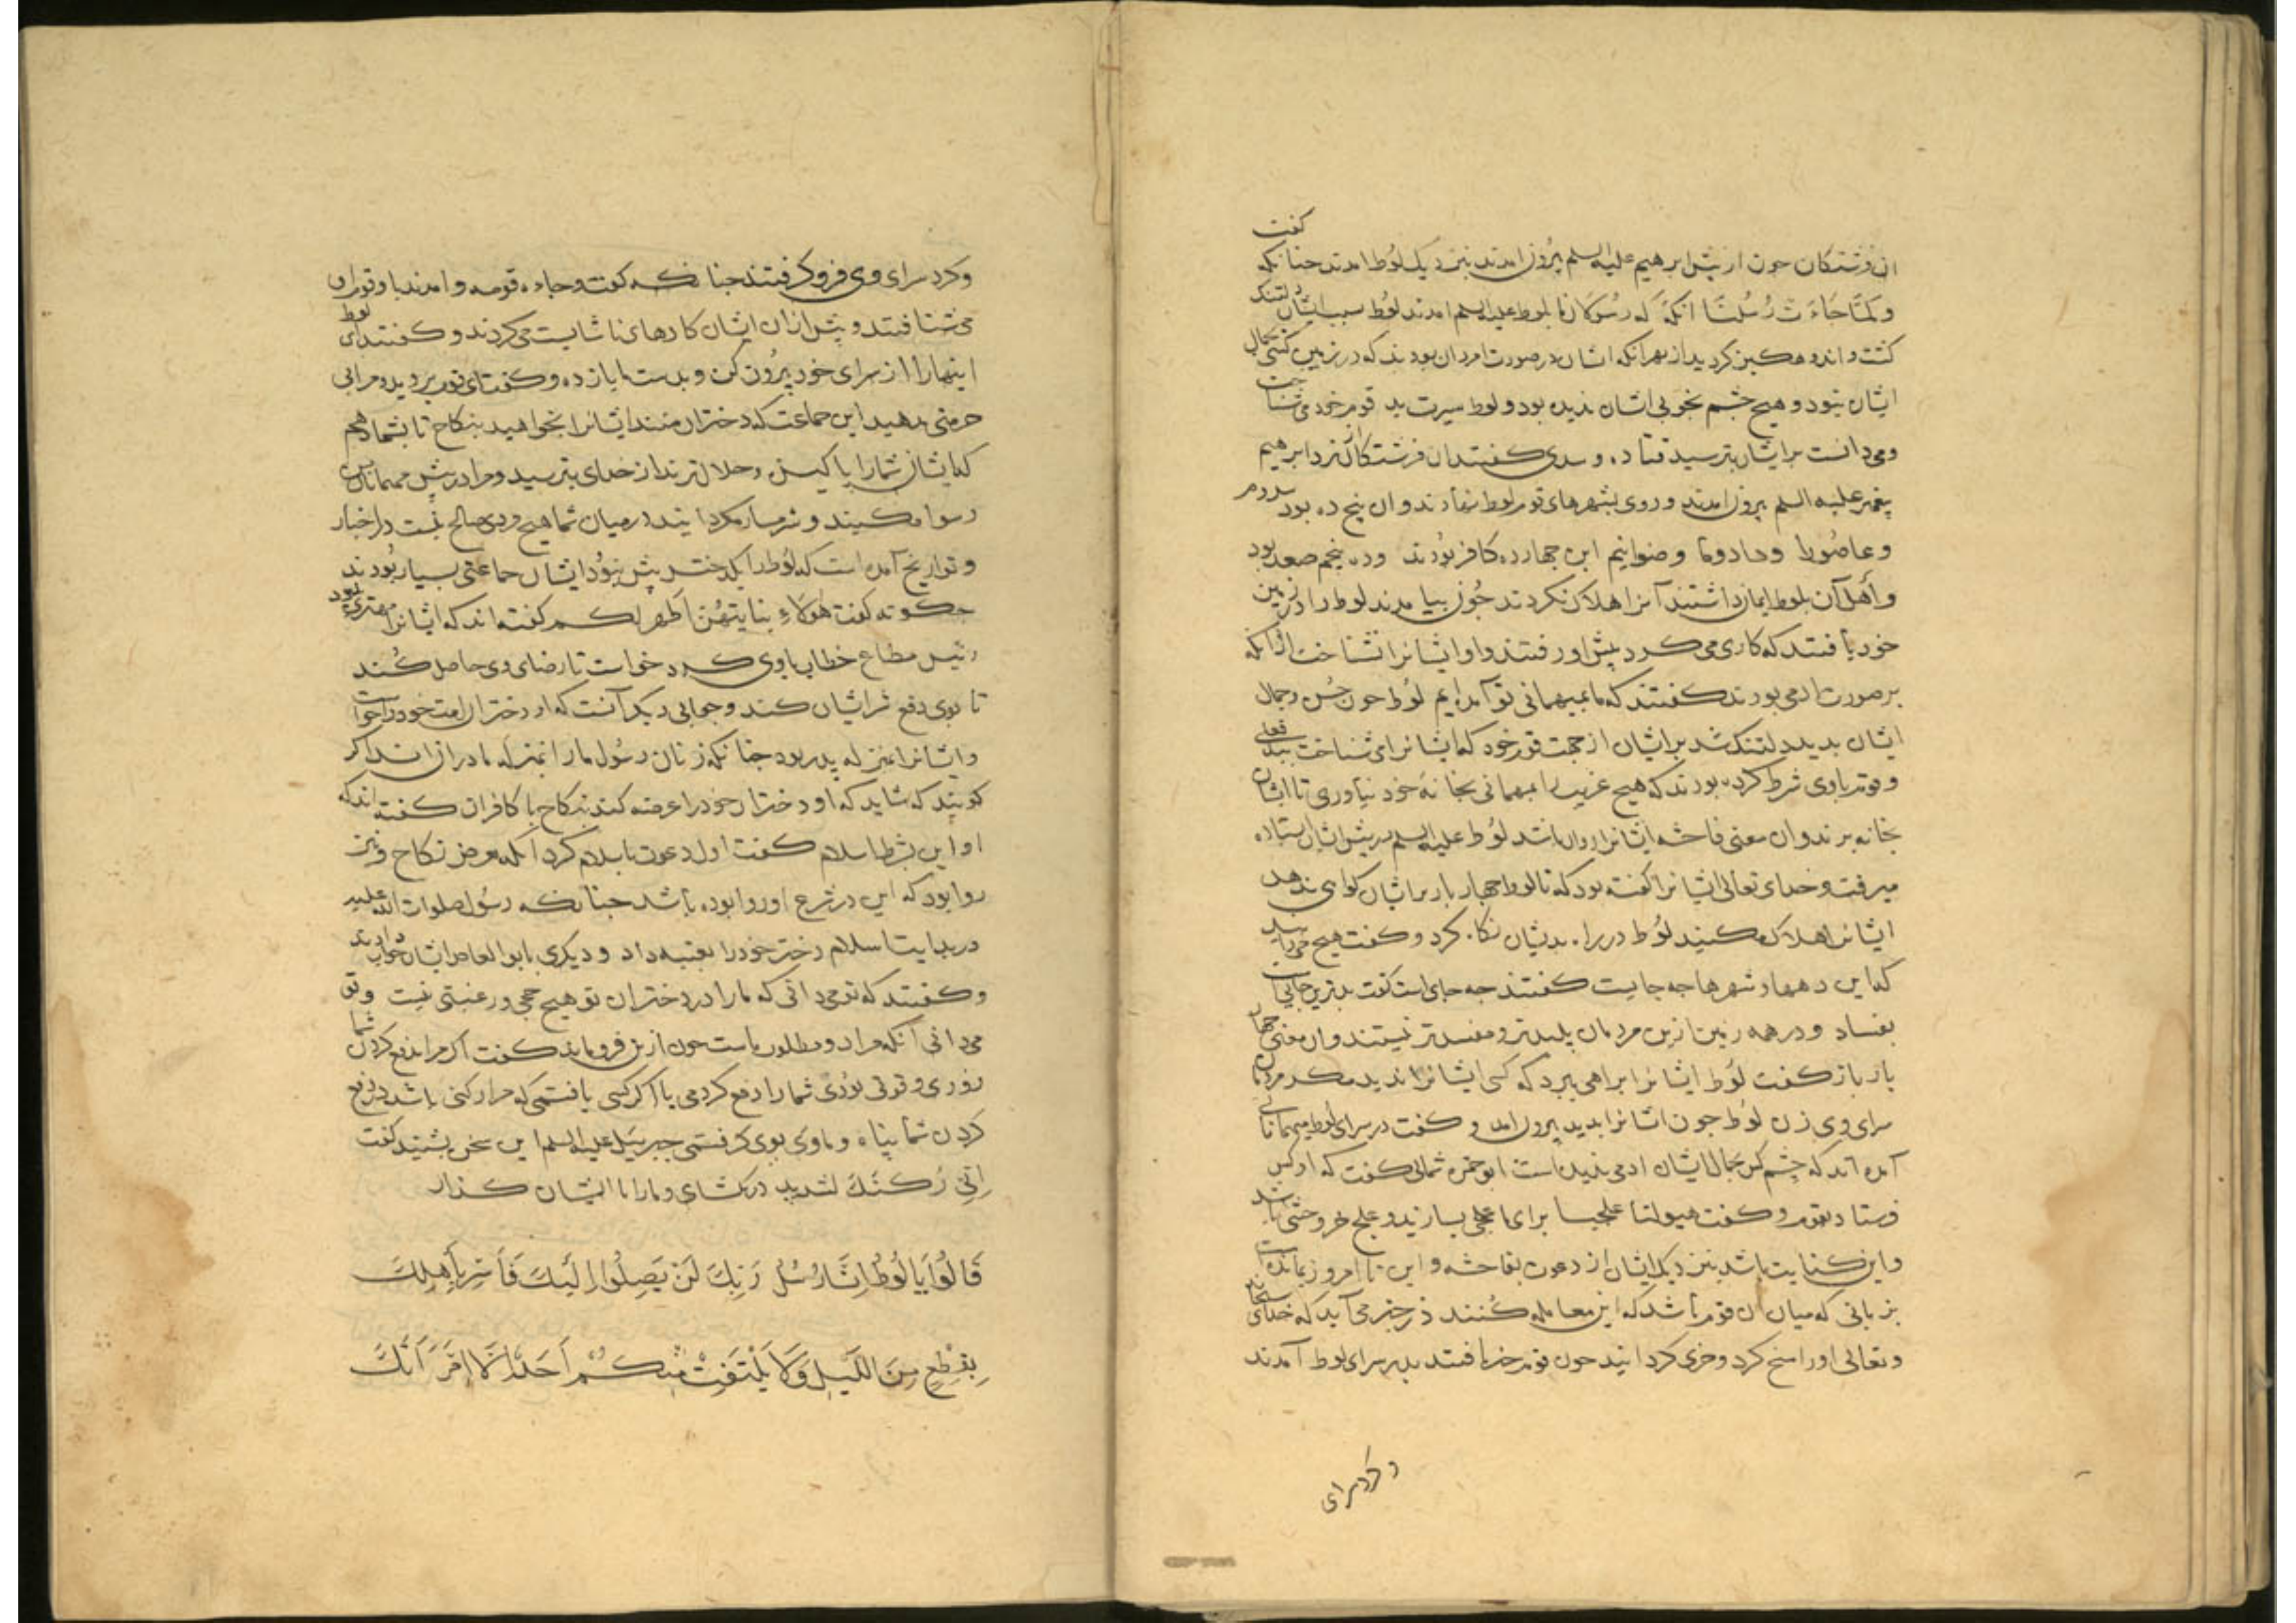 ان فرشتکان حون از پیش ابرهیم علیه السلم بیرون امدند بنزدیک لوط امدند حنانکه کفت
و لمّا جاءت رُسُلنا انکه که رسولان ما بلوط علیه السلم امدند لوط سبب ایشان دلتنک
کشت و اندوهکین کردید از بهر انکه اشان در صورت امردان بودند که در زمین کسی بجمال
ایشان نبود و هیچ چشم بخوبی اشان ندیده بود و لوط سیرت بد قوم خود می شناخت
و می دانست بر ایشان بترسید قتاده و سدی کفتند ان فرشتکان از نزد ابرهیم
پیغمبر علیه السلم بیرون امدند و روی بشهرهای قوم لوط نهادند و ان پنج ده بود سدوم
و عاصورا و دادوما و ضوایم این جهار ده کافر بودند و ده پنجم صعد بود
و اهل آن بلوط ایمان داشتند آنرا هلاک نکردند چون بیامدند لوط را در زمین
خود یافتند که کاری می کرد پیش او رفتند و او ایشانرا نشناخت ازانکه
بر صورت ادمی بودند کفتند که ما بمیهمانی تو آمده ایم لوط حون حسن و جمال
ایشان بدید دلتنک شد بر ایشان از جهت قوم خود که ایشانرا می شناخت ببد فعلی
و قوم با وی شرط کرده بودند که هیچ غریب را بمهمانی بخانهٔ خود نیاوری تا ایشان
بخانه برند و ان معنی فاحشه ایشانرا روان باشد لوط علیه السلم در پیش ایشان ستاده
میرفت و خدای تعالی ایشانرا کفته بود که تا لوط جهار بار بر اشان کواهی ندهد
ایشانرا هلاک مکنید لوط در راه بدیشان نکاه کرد و کفت هیچ می دانید
که این دهها و شهرها جه جایست کفتند جه جای است کفت بدترین جایی است
بفساد و در همه زمین ازین مردمان پلیدتر و مفسدتر نیستند و ان معنی جهار
بار باز کفت لوط ایشانرا براهی ببرد که کسی ایشانرا ندید مکر مردمان
سرای وی زن لوط جون اشانرا بدید بیرون امد و کفت در سرای لوط میهمانانی
آمده اند که چشم کس بجمال ایشان ادمی ندیده است ابو حمزه ثمالی کفت که او کس
فرستاد بقوم و کفت هیولنا علجا برای ما علجی بسازید و علج خر وحشی باشد
و این کنایت باشد بنزدیک ایشان از دعوت بفاحشه و این تا امروز بمانده است
بزبانی که میان ان قوم باشد که این معامله کنند در خبر می آید که خدای سبحانه
و تعالی او را مسخ کرد و خری کردانید حون قوم خبر یافتند بدر سرای لوط آمدند
و کرد سرای
و کرد سرای وی فرو کرفتند جنانکه کفت و جاءه قومه و امدند با و قوم او
می شتافتند و پیش از ان ایشان کارهای ناشایست می کردند و کفتند ای لوط
اینها را از سرای خود بیرون کن و بدست ما باز ده و کفت ای قوم بروید و مرا بی
حرمتی مدهید این جماعت که دختران منند ایشانرا بخواهید بنکاح تا بشما دهم
که ایشان شما را پاکیزه و حلال ترند از خدای بترسید و مرا در پیش مهمانان من
رسوا مکنید و شرمسار مکردانید در میان شما هیچ مردی صالح نیست در اخبار
و تواریخ آمده است که لوط را یک دختر بیش نبود ایشان جماعتی بسیار بودند
جکونه کفت هؤلاء بناتی هن اطهر لکم کفته اند که ایشانرا مهتری بود
رئیس مطاع خطاب با وی کرد خواست تا رضای وی حاصل کند
تا بوی دفع شر ایشان کند و جوابی دیکر آنست که او دختران امت خود را خواست
و ایشانرا بمنزله پدر بود جنانکه زنان رسول ما را بمنزله مادران اند اکر
کویند که شاید که او دختران خود را عرضه کند بنکاح با کافران کفته اند که
او این بشرط اسلام کفت اول دعوت باسلام کرد انکه عرض نکاح و نیز
روا بود که این در شرع او روا بوده باشد جنانکه رسول صلوات الله علیه
در بدایت اسلام دختر خود را بعتبه داد و دیکری بابو العاص ایشان جواب دادند
و کفتند که تو می دانی که ما را در دختران تو هیچ حقی و رغبتی نیست و تو
می دانی آنکه مراد و مطلوب ماست حون ازین فرو ماند کفت اکر مرا بدفع کردن شما
زوری و قوتی بودی شما را دفع کردمی یا اکر کسی یافتمی که مرا رکنی باشد در دفع
کردن شما پناه و ماوی بوی کرفتمی جبرییل علیه السلم این سخن بشنید کفت
اِنّ رُکنَکَ لشدید در بکشای و ما را با ایشان کذار
قَالُوا یَا لُوطُ اِنَّا رُسُلُ رَبِّکَ لَنْ یَصِلُوا اِلَیْکَ فَاَسْرِ بِاَهْلِکَ
بِقِطْعٍ مِنَ اللَّیْلِ وَلَا یَلْتَفِتْ مِنْکُمْ اَحَدٌ اِلَّا امْرَاَتَکَ